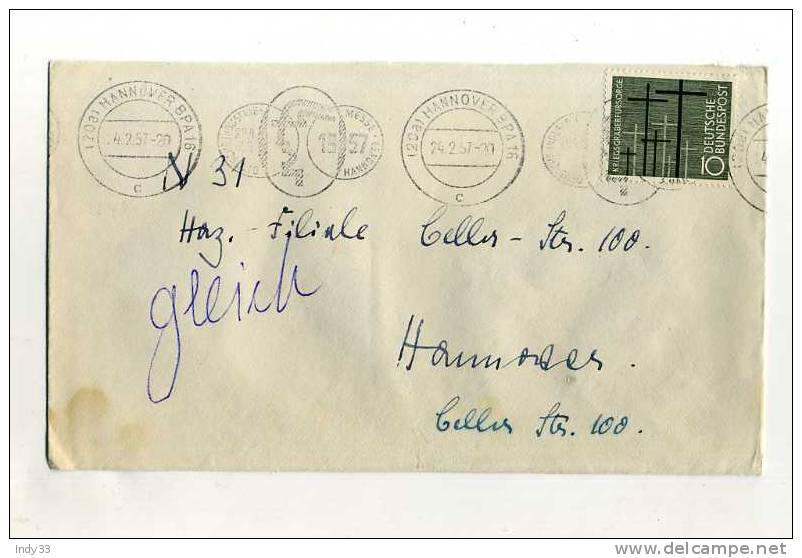 (20a) HANNOVER BPA 16
24.2.57-20
c
MESSE
HANNOVER
(20a) HANNOVER BPA 16
24.2.57-20
c
KRIEGSGRÄBERFÜRSORGE
DEUTSCHE
BUNDESPOST
10
N 31
Haz.-Filiale Celler-Str. 100.
gleich
Hannover.
Celler Str. 100.
Indy33
www.delcampe.net